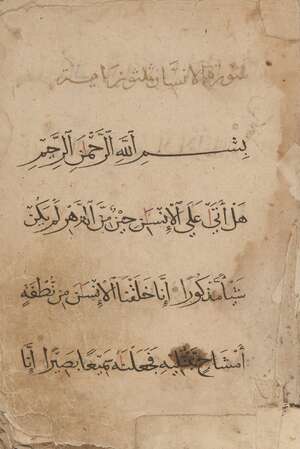 سورة الانسان ثلثون اية
بِسْمِ ٱللَّهِ ٱلرَّحْمَٰنِ ٱلرَّحِيمِ
هَلْ أَتَىٰ عَلَى ٱلْإِنسَٰنِ حِينٌ مِّنَ ٱلدَّهْرِ لَمْ يَكُن
شَيْـًٔا مَّذْكُورًا إِنَّا خَلَقْنَا ٱلْإِنسَٰنَ مِن نُّطْفَةٍ
أَمْشَاجٍ نَّبْتَلِيهِ فَجَعَلْنَٰهُ سَمِيعًۢا بَصِيرًا إِنَّا